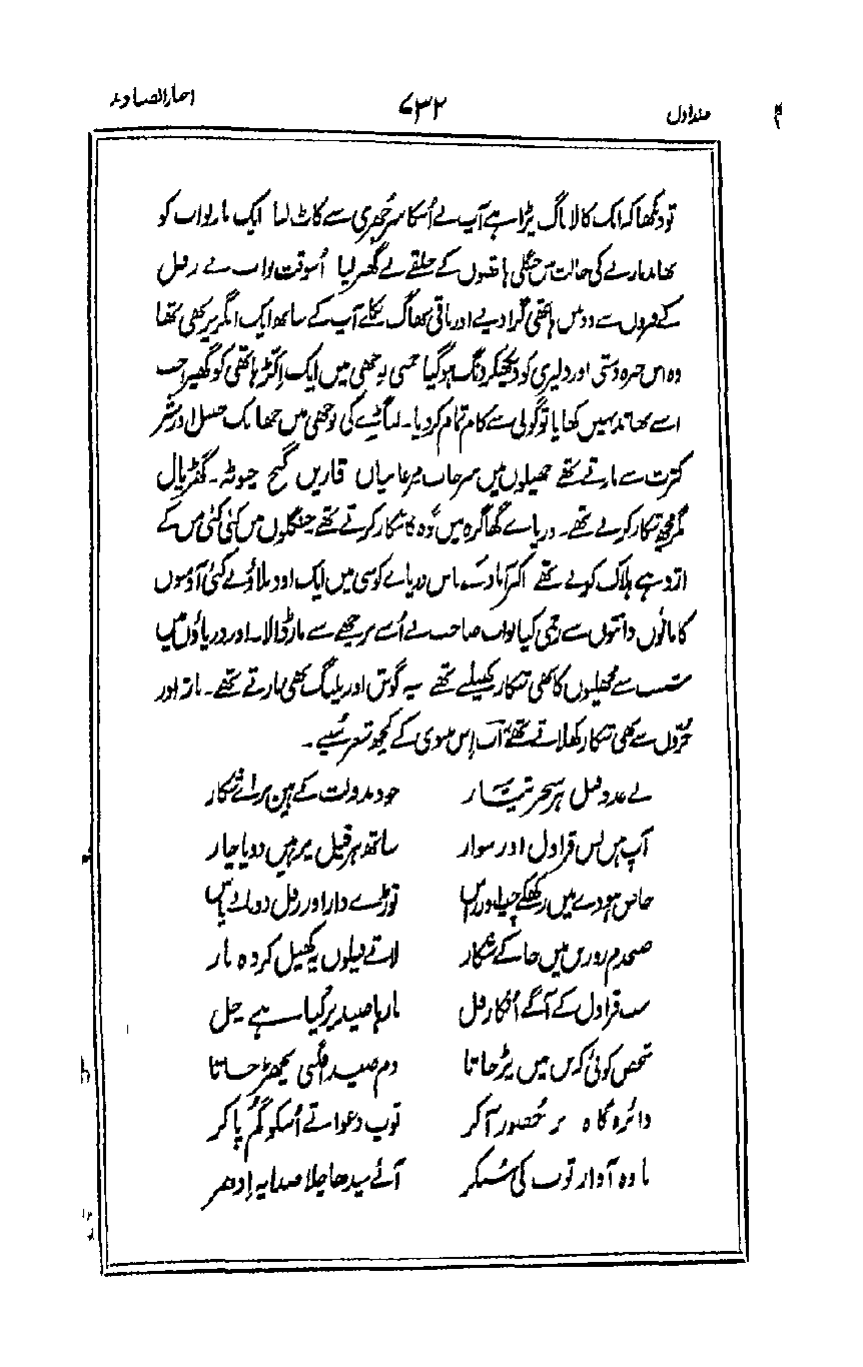 اخبارالصنادید
۷۳۲
جلد اول
تو دیکھا کہ ایک کالا ناگ پڑا ہے آپ نے اُسکا سر چُھری سے کاٹ لیا ایک بار نواب کو
کی حالت میں جنگلی ہاتھیوں کے حلقے نے گھیر لیا اُسوقت نواب نے رفل
کے فیروں سے دو تین ہاتھی گرا دیے اور باقی بھاگ نکلے آپ کے ساتھ ایک انگریز بھی تھا
وہ اس چیرہ دستی اور دلیری کو دیکھکر دنگ ہوگیا میں ایک اِکّڑ ہاتھی کو گھیرا جب
اسے نہیں کھایا تو گولی سے کام تمام کر دیا۔ کی میں چیتل اور شیر
کثرت سے مارتے تھے جھیلوں میں سرخاب مرغابیاں قازیں چوٹہ۔ گھڑیال
مگرمچھ شکار کرتے تھے۔ دریاے گھاگرہ میں گوہ کا شکار کرتے تھے جنگلوں میں کئی کئی من کے
اژدہے ہلاک کرتے تھے پاس دریاے کوسی میں ایک اود بلاؤ نے کئی آدمیوں
کا پانوں دانتوں سے زخمی کیا نواب صاحب نے اُسے برچھے سے مار ڈالا۔ اور دریاؤں میں
شست سے مچھلیوں کا بھی شکار کھیلتے تھے سیہ گوش اور پلنگ بھی مارتے تھے۔ باز اور
جُرّوں سے بھی شکار کھلاتے تھے آپ اِس مثنوی کے کچھ شعر سُنیے۔
بے عدد فیل ہر سحر تیار	خود بدولت کے ہین برائے شکار
آپ ہیں بس قراول اور سوار	ساتھ ہر فیل پر ہیں دو یا چار
خاص ہودے میں رکھکے	توڑے دار اور رفل دو نالے
صبحدم روز بن میں جا کے شکار	لاتے فیلوں پہ کھیل کر دہ بار
سب قراول کے آگے رفل	بارہا صید پر گیا ہے چل
شخص کوئی کہیں میں پڑ جاتا	دم صید افگنی بچھڑ جاتا
دائرہ گاہ پر حُضور آ کر	توپ دغواتے اُسکو گُم پا کر
تا وہ آواز توپ کی سُنکر	آئے سیدھا چلا صدا پہ اِدھر